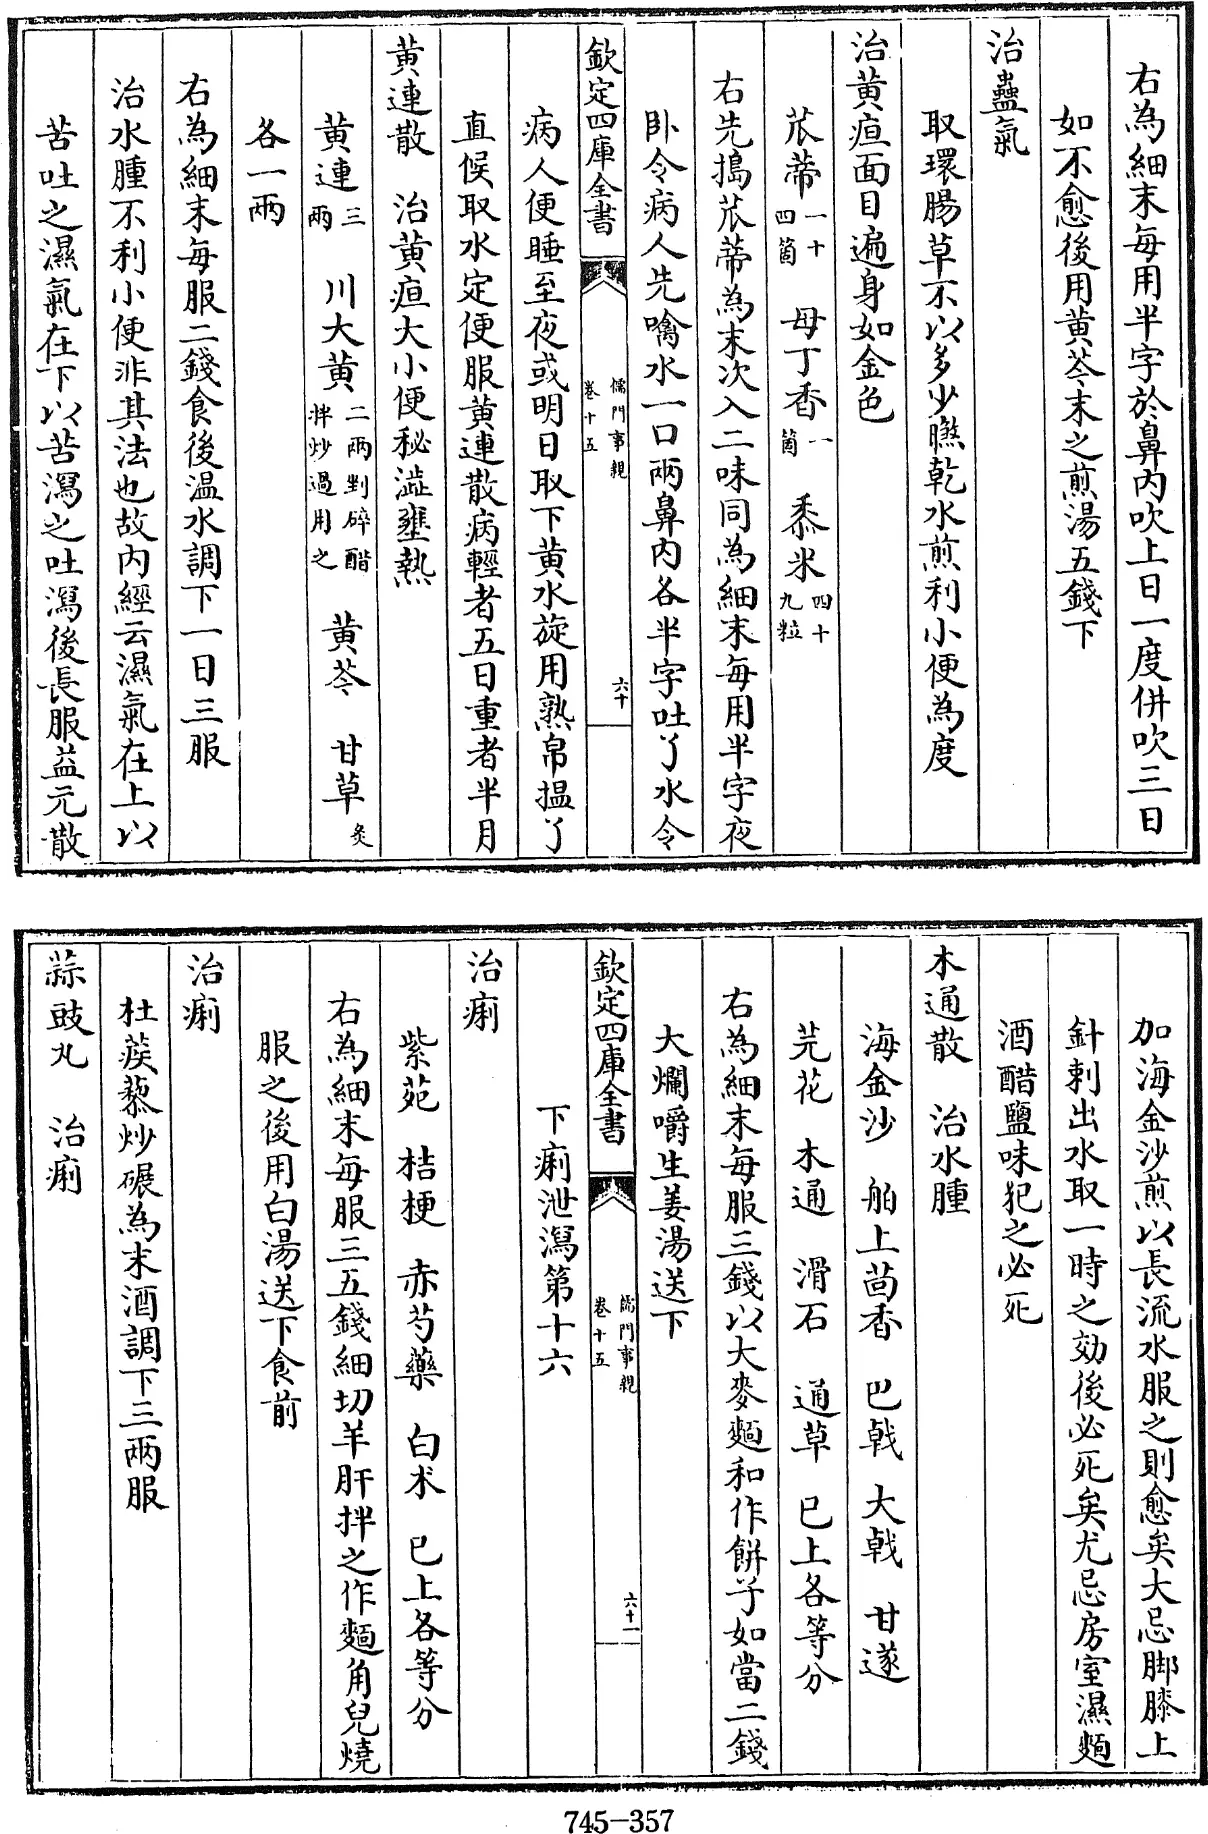 右為細末每用半字於鼻内吹上日一度併吹三日
如不愈後用黄芩末之煎湯五錢下
治蠱氣
取環腸草不以多少㬠乾水煎利小便為度
治黄疸面目遍身如金色
苽蒂一十四箇 母丁香一箇 黍米四十九粒
右先搗苽蒂為末次入二味同為細末每用半字夜
卧令病人先噙水一口兩鼻内各半字吐了水令
欽定四庫全書 儒門事親 卷十五 六十
病人便睡至夜或明日取下黄水旋用熟帛揾了
直候取水定便服黄連散病輕者五日重者半月
黄連散 治黄疸大小便秘澁壅熱
黄連三兩 川大黄二兩剉碎醋拌炒過用之 黄芩 甘草炙
各一兩
右為細末每服二錢食後温水調下一日三服
治水腫不利小便非其法也故内經云濕氣在上以
苦吐之濕氣在下以苦瀉之吐瀉後長服益元散
加海金沙煎以長流水服之則愈矣大忌脚膝上
針刺出水取一時之効後必死矣尤忌房室濕麵
酒醋鹽味犯之必死
木通散 治水腫
海金沙 舶上茴香 巴戟 大戟 甘遂
芫花 木通 滑石 通草 已上各等分
右為細末每服三錢以大麥麵和作餅子如當二錢
大爛嚼生姜湯送下
欽定四庫全書 儒門事親 卷十五 六十一
下痢泄瀉第十六
治痢
紫菀 桔梗 赤芍藥 白术 已上各等分
右為細末每服三五錢細切羊肝拌之作麵角兒燒
服之後用白湯送下食前
治痢
杜蒺藜炒碾為末酒調下三兩服
蒜豉丸 治痢
745-357